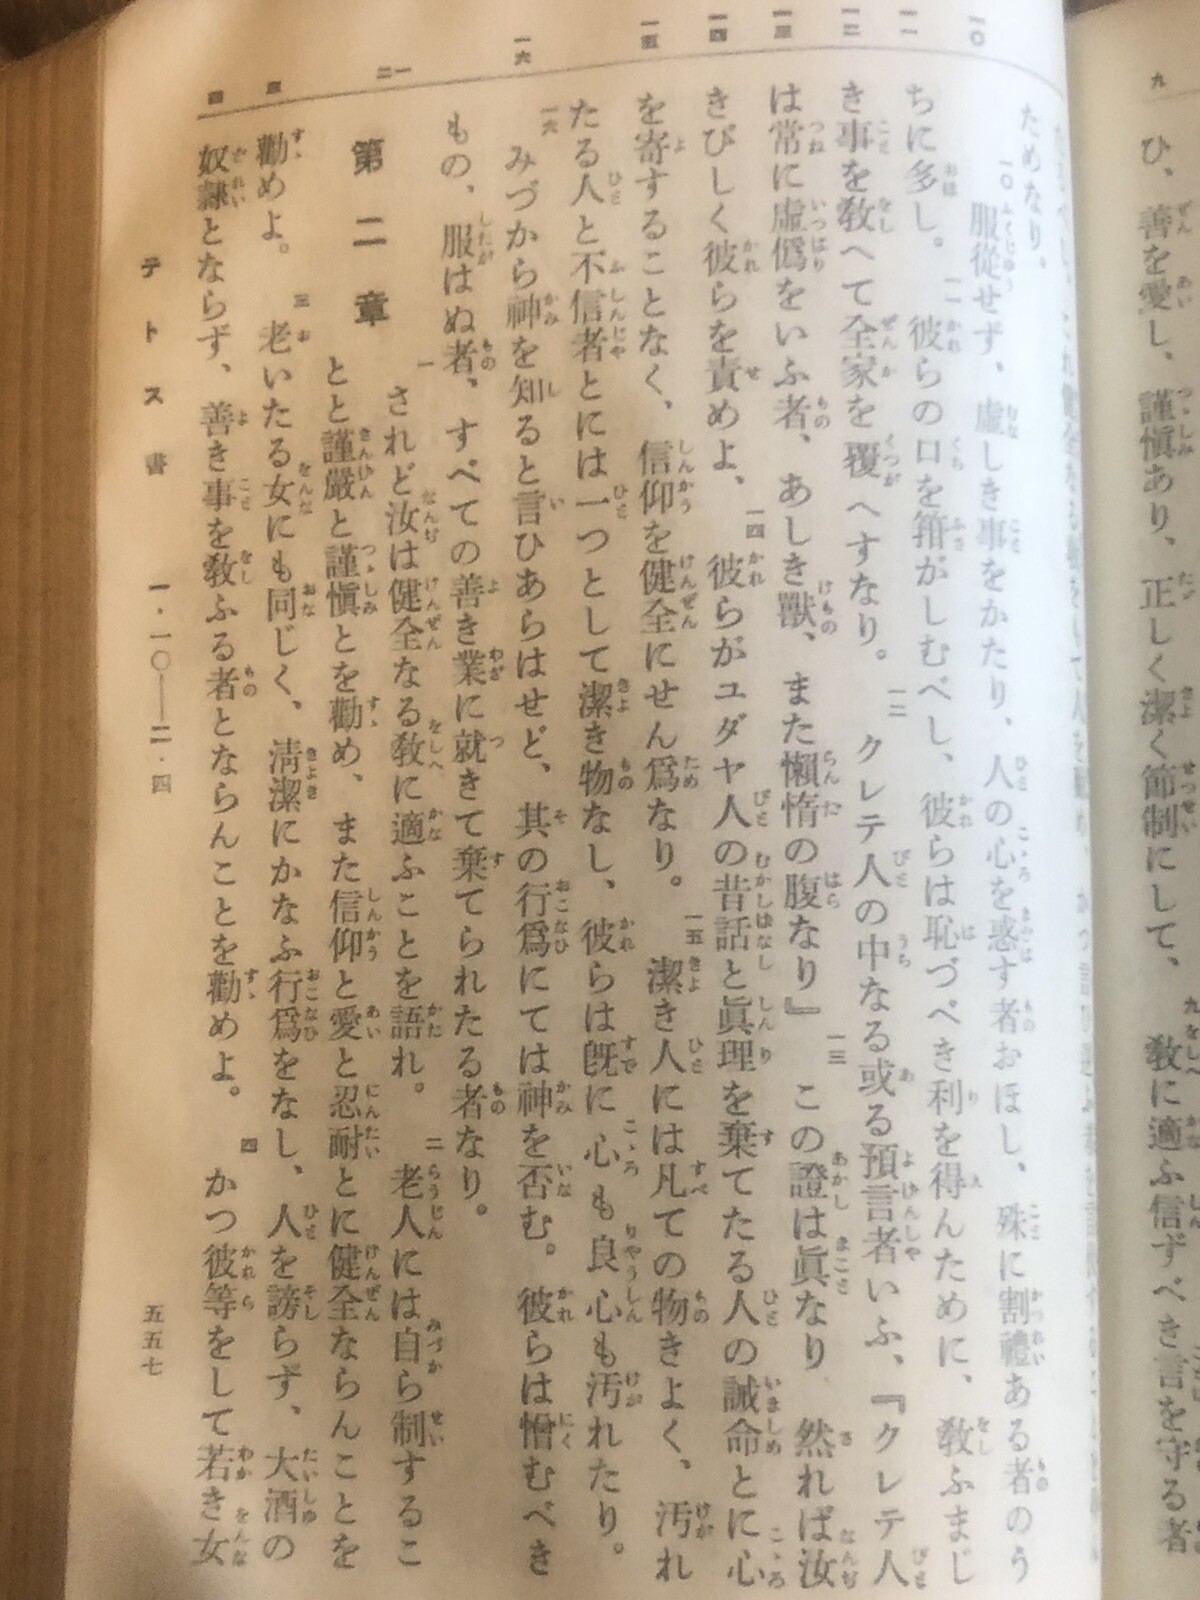 九
ひ、善を愛し、謹愼あり、正しく潔く節制にして、九教に適ふ信ずべき言を守る者
一〇
一一
一二
一三
一四
一五
一六
二一
三
四
ためなり。
一〇服從せず、虚しき事をかたり、人の心を惑す者おほし、殊に割禮ある者のう
ちに多し。一一彼らの口を箝がしむべし、彼らは恥づべき利を得んために、教ふまじ
き事を教へて全家を覆へすなり。一二クレテ人の中なる或る預言者いふ、『クレテ人
は常に虚僞をいふ者、あしき獸、また懶惰の腹なり』一三この證は眞なり 然れば汝
きびしく彼らを責めよ、一四彼らがユダヤ人の昔話と眞理を棄てたる人の誡命とに心
を寄することなく、信仰を健全にせん爲なり。一五潔き人には凡ての物きよく、汚れ
たる人と不信者とには一つとして潔き物なし、彼らは既に心も良心も汚れたり。
一六みづから神を知ると言ひあらはせど、其の行爲にては神を否む。彼らは憎むべき
もの、服はぬ者、すべての善き業に就きて棄てられたる者なり。
第二章 一されど汝は健全なる教に適ふことを語れ。二老人には自ら制するこ
とと謹嚴と謹愼とを勸め、また信仰と愛と忍耐とに健全ならんことを
勸めよ。三老いたる女にも同じく、清潔にかなふ行爲をなし、人を謗らず、大酒の
奴隷とならず、善き事を教ふる者とならんことを勸めよ。四かつ彼等をして若き女
テトス書 一・一〇―二・四 五五七